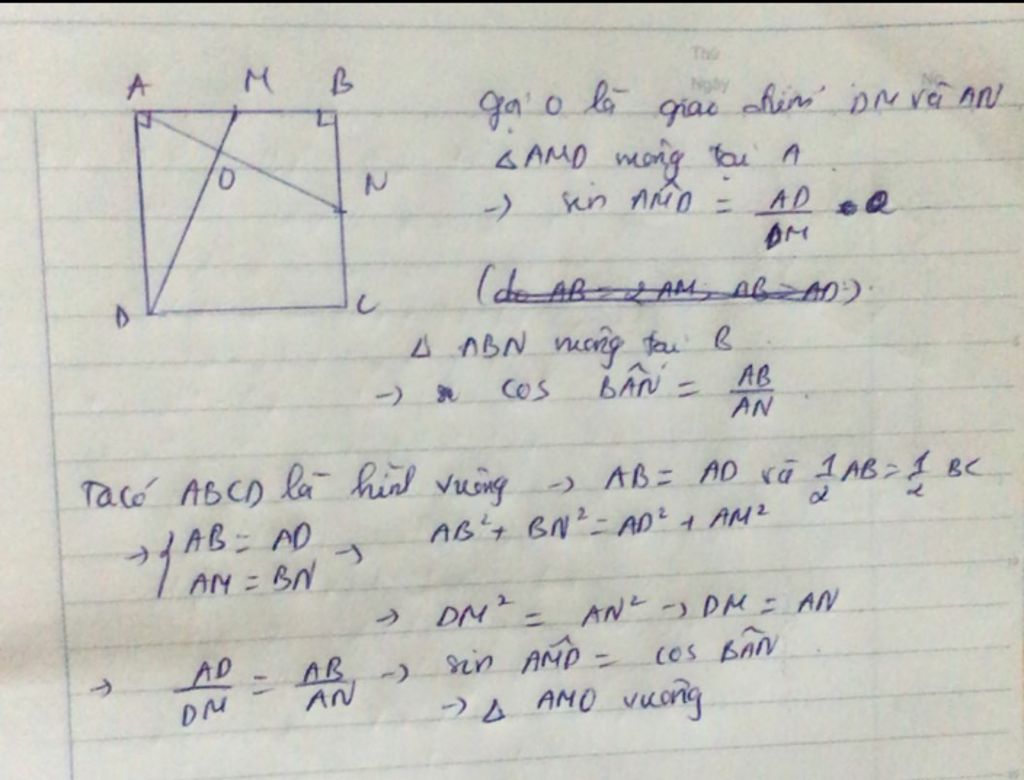 Thứ
Ngày
No
A M B
O
N
D C
gọi O là giao điểm DM và AN
Δ AMD vuông tại A
→ sin AM̂D = AD/DM
(do AB = 2 AM, AB = AD)
Δ ABN vuông tại B
→ cos BÂN = AB/AN
Ta có ABCD là hình vuông → AB = AD và 1/2 AB = 1/2 BC
→ { AB = AD → AB² + BN² = AD² + AM²
AM = BN
→ DM² = AN² → DM = AN
→ AD/DM = AB/AN → sin AM̂D = cos BÂN
→ Δ AMO vuông